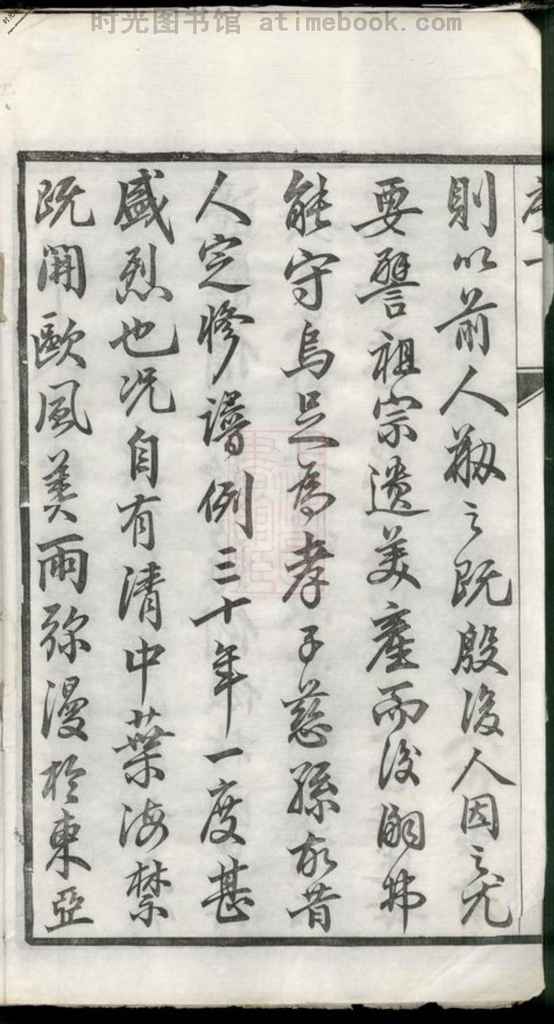 时光图书馆 atimebook.com
則以前人剏之既殷後人因之尤
要譬祖宗遺美產而後嗣弗
能守烏足為孝子慈孫故昔
人定修譜例三十年一度甚
盛烈也况自有清中葉海禁
既開歐風美雨弥漫於東亞